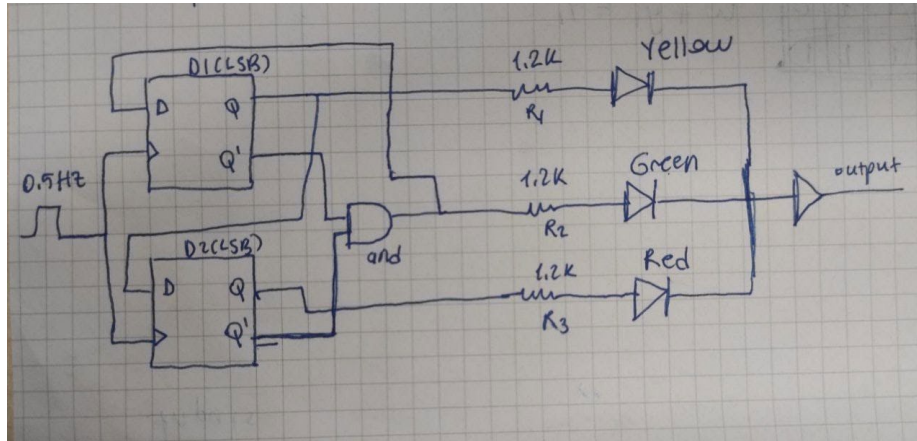 D1(LSB)
D
Q
Q'
0.5HZ
D2(LSB)
D
Q
Q'
and
1.2K
R1
Yellow
1.2K
R2
Green
1.2K
R3
Red
output